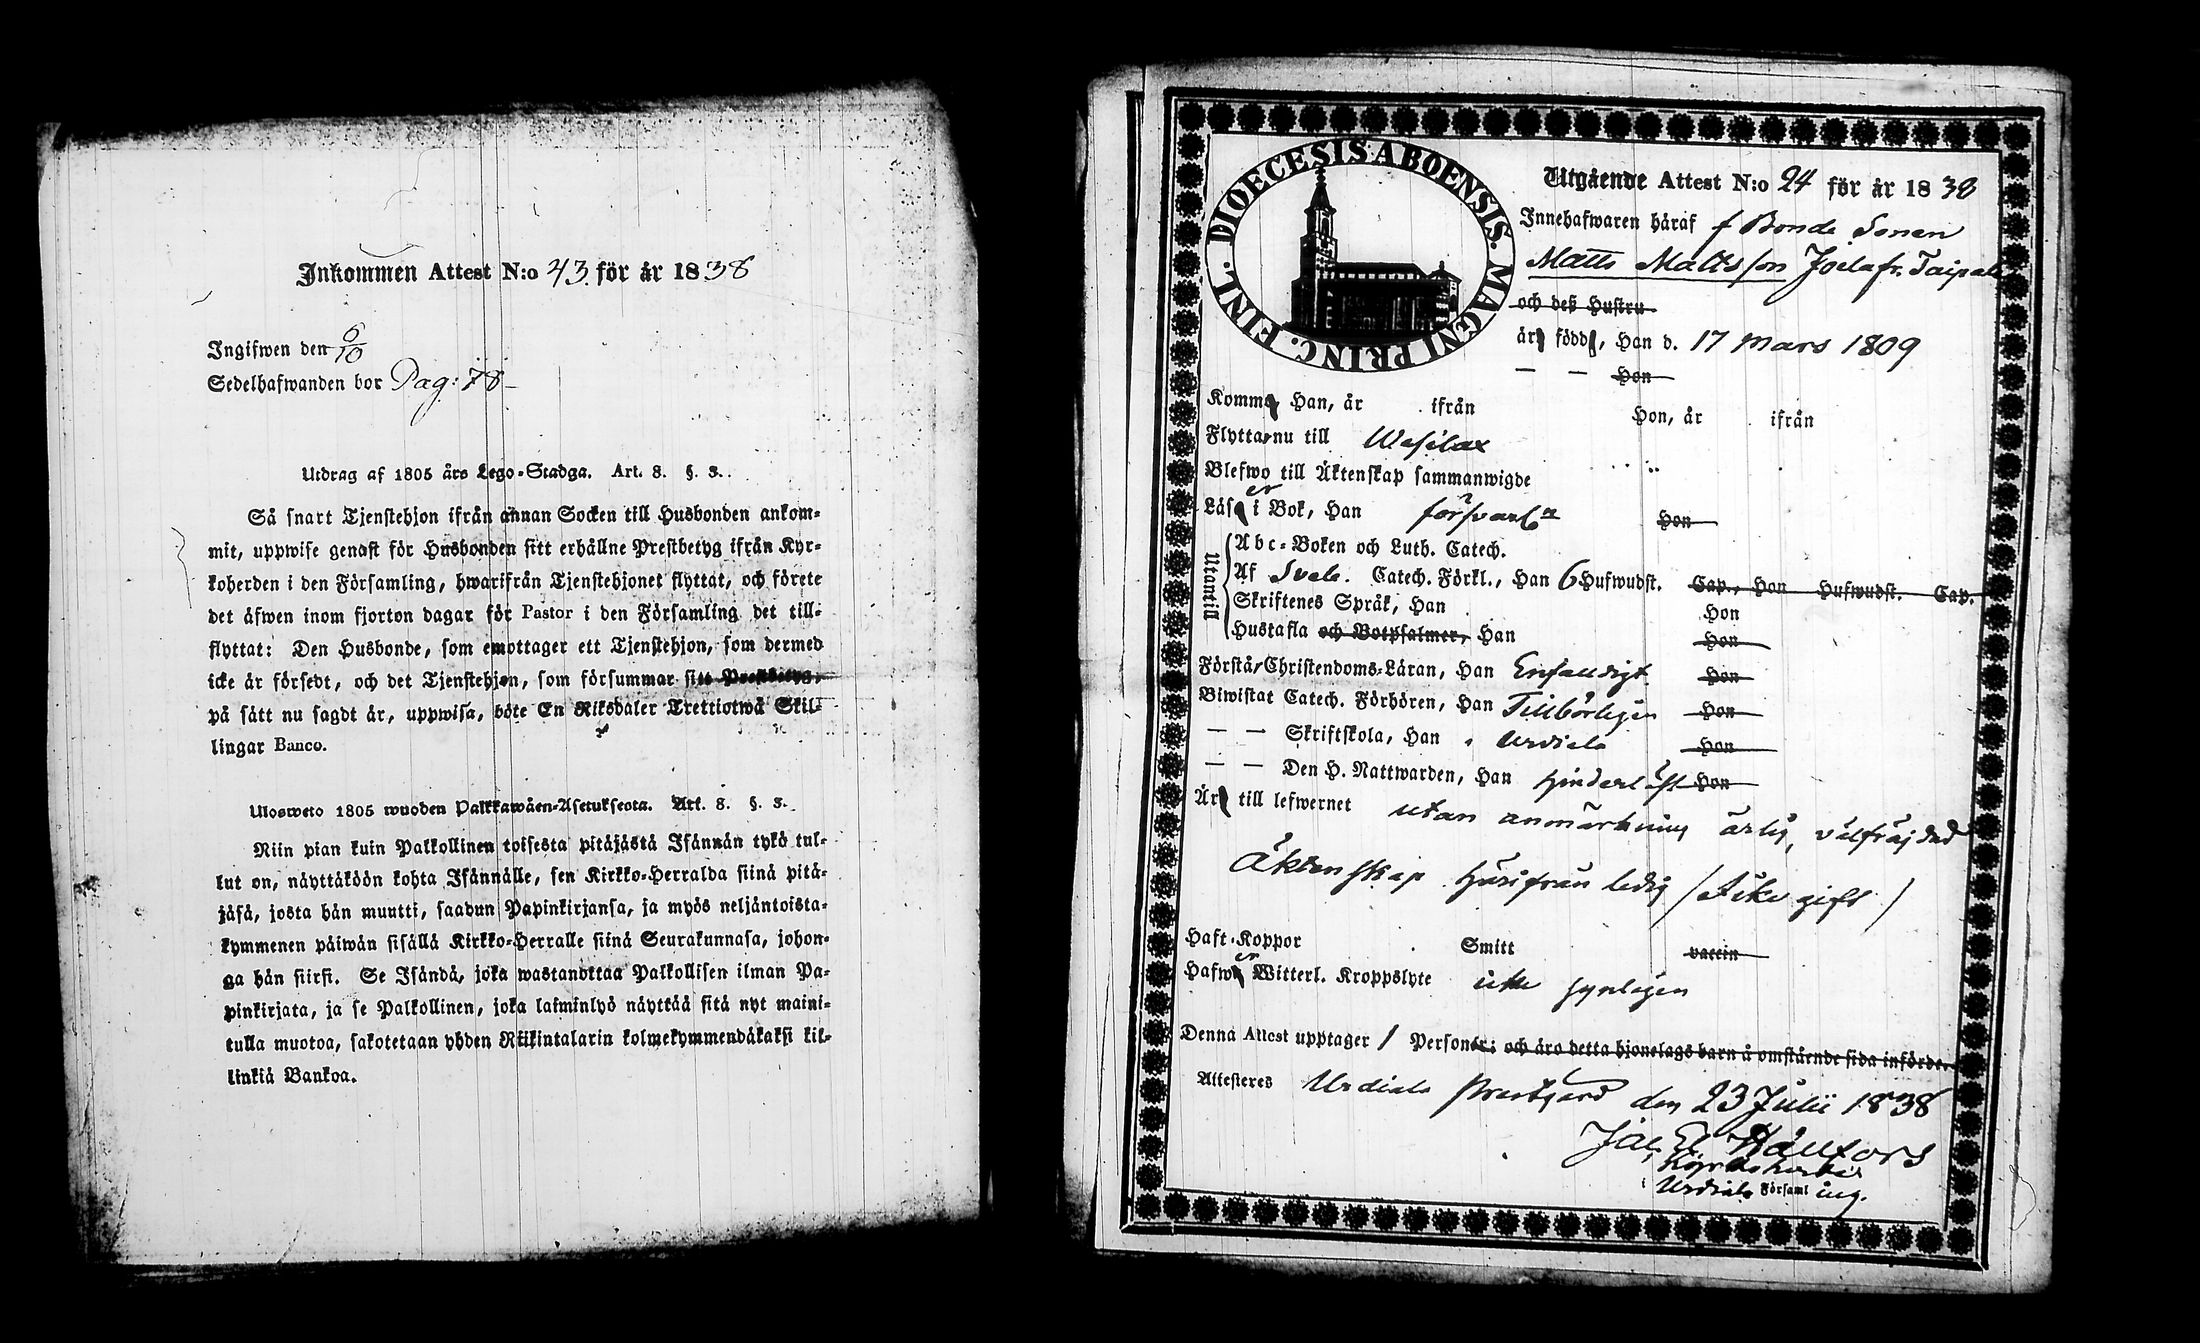 Inkommen Attest N:o 43. för år 1838
Ingifwen den 6/10
Sedelhafwanden bor Pag: 78-
Utdrag af 1805 års Lego-Stadga. Art. 8. §. 3.
Så snart Tjenstehjon ifrån annan Socken till Husbonden ankom-
mit, uppwise genast för Husbonden sitt erhållne Prestbetyg ifrån Kyr-
koherden i den Församling, hwarifrån Tjenstehjonet flyttat, och förete
det äfwen inom fjorton dagar för Pastor i den Församling det till-
flyttat: Den Husbonde, som emottager ett Tjenstehjon, som dermed
icke är försedt, och det Tjenstehjon, som försummar sitt Prestbetyg,
på sätt nu sagdt är, uppwisa, böte En Riksdaler Trettiotwå Skil-
lingar Banco.
Ulosweto 1805 wuoden Palkkawäen-Asetuksesta. Art. 8. §. 3.
Niin pian kuin Palkollinen toisesta pitäjästä Isännän tykö tul-
lut on, näyttäköön kohta Isännälle, sen Kirkko-Herralda siinä pitä-
jäsä, josta hän muutti, saadun Papinkirjansa, ja myös neljäntoista-
kymmenen päiwän sisällä Kirkko-Herralle siinä Seurakunnasa, johon-
ga hän siirsi. Se Isändä, joka wastanottaa Palkollisen ilman Pa-
pinkirjata, ja se Palkollinen, joka laiminlyö näyttää sitä nyt maini-
tulla muotoa, sakotetaan yhden Riikintalarin kolmekymmendäkaksi kil-
linkiä Bankoa.
DIOECESIS ABOENSIS. MAGNI PRINC. FINL.
Utgående Attest N:o 24 för år 1838
Innehafwaren häraf f Bonde Sonen
Matts Mattsson Joela fr. Taipale
och deß Hustru
är född, Han d. 17 Mars 1809
— — Hon
Komm Han, år ifrån Hon, år ifrån
Flyttar nu till Wesilax
Blefwo till Äktenskap sammanwigde
Läser i Bok, Han försvarl. Hon
Utantill
Abc-Boken och Luth. Catech.
Af Sveb. Catech. Förkl., Han 6 Hufwudst. Cap., Hon Hufwudst. Cap.
Skriftenes Språk, Han Hon
Hustafla och Botpsalmer, Han Hon
Förstår Christendoms-Läran, Han Enfaldigt Hon
Biwistat Catech. Förhören, Han Tillbörligen Hon
— — Skriftskola, Han i Urdiala Hon
— — Den H. Nattwarden, Han Hinderlöst Hon
Är till lefwernet utan anmärkning ärlig, välfräjdad
Äktenskap härifrån ledig (Icke gift)
Haft Koppor Smitt vaccin
Hafwer Witterl. Kroppslyte icke synligen
Denna Attest upptager 1 Personer: och äro detta hjonelags barn å omstående sida införde.
Attesteres Urdiala Prestgård den 23 Julii 1838
Kyrkoherde
i Urdiala Församling.